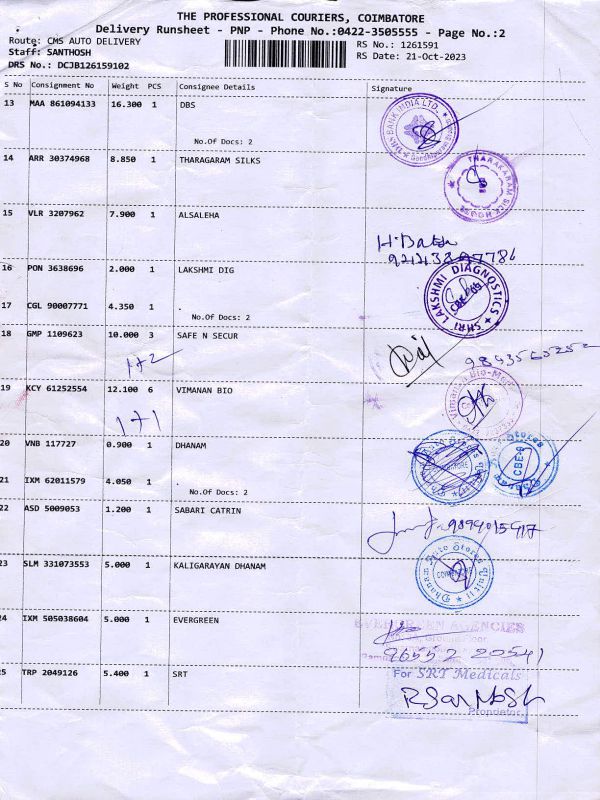 THE PROFESSIONAL COURIERS, COIMBATORE
Delivery Runsheet - PNP - Phone No.:0422-3505555 - Page No.:2
Route: CMS AUTO DELIVERY
RS No.: 1261591
Staff: SANTHOSH
RS Date: 21-Oct-2023
DRS No.: DCJB126159102
S No Consignment No Weight PCS Consignee Details Signature
13 MAA 861094133 16.300 1 DBS
No.Of Docs: 2
BANK INDIA LTD.
14 ARR 30374968 8.850 1 THARAGARAM SILKS
THARAKARAM SILK HOUSE
15 VLR 3207962 7.900 1 ALSALEHA
16 PON 3638696 2.000 1 LAKSHMI DIG
SHRI LAKSHMI DIAGNOSTICS
CBE
17 CGL 90007771 4.350 1
No.Of Docs: 2
18 GMP 1109623 10.000 3 SAFE N SECUR
1+2
19 KCY 61252554 12.100 6 VIMANAN BIO
Vimanan Bio-Med
1+1
20 VNB 117727 0.900 1 DHANAM
Stores
CBE-6
21 IXM 62011579 4.050 1
No.Of Docs: 2
22 ASD 5009053 1.200 1 SABARI CATRIN
23 SLM 331073553 5.000 1 KALIGARAYAN DHANAM
Dhanam Auto Stores Unit II
24 IXM 505038604 5.000 1 EVERGREEN
EVERGREEN AGENCIES
96552 20541
25 TRP 2049126 5.400 1 SRT
For SRT Medicals
Proprietor